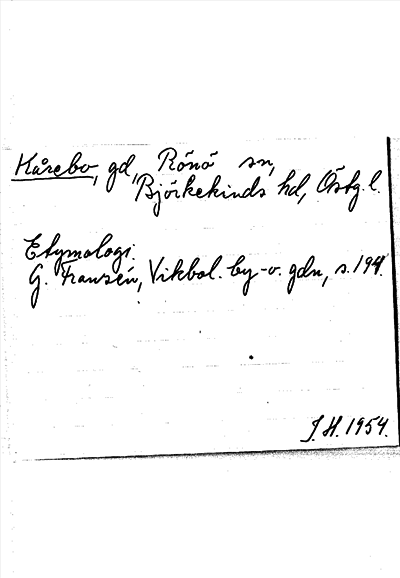 Kårebo, gd, Rönö sn,
Björkekinds hd, Östg.l.
Etymologi.
G. Franzén, Vikbol. by- o. gdn, s.
J.H. 1954.